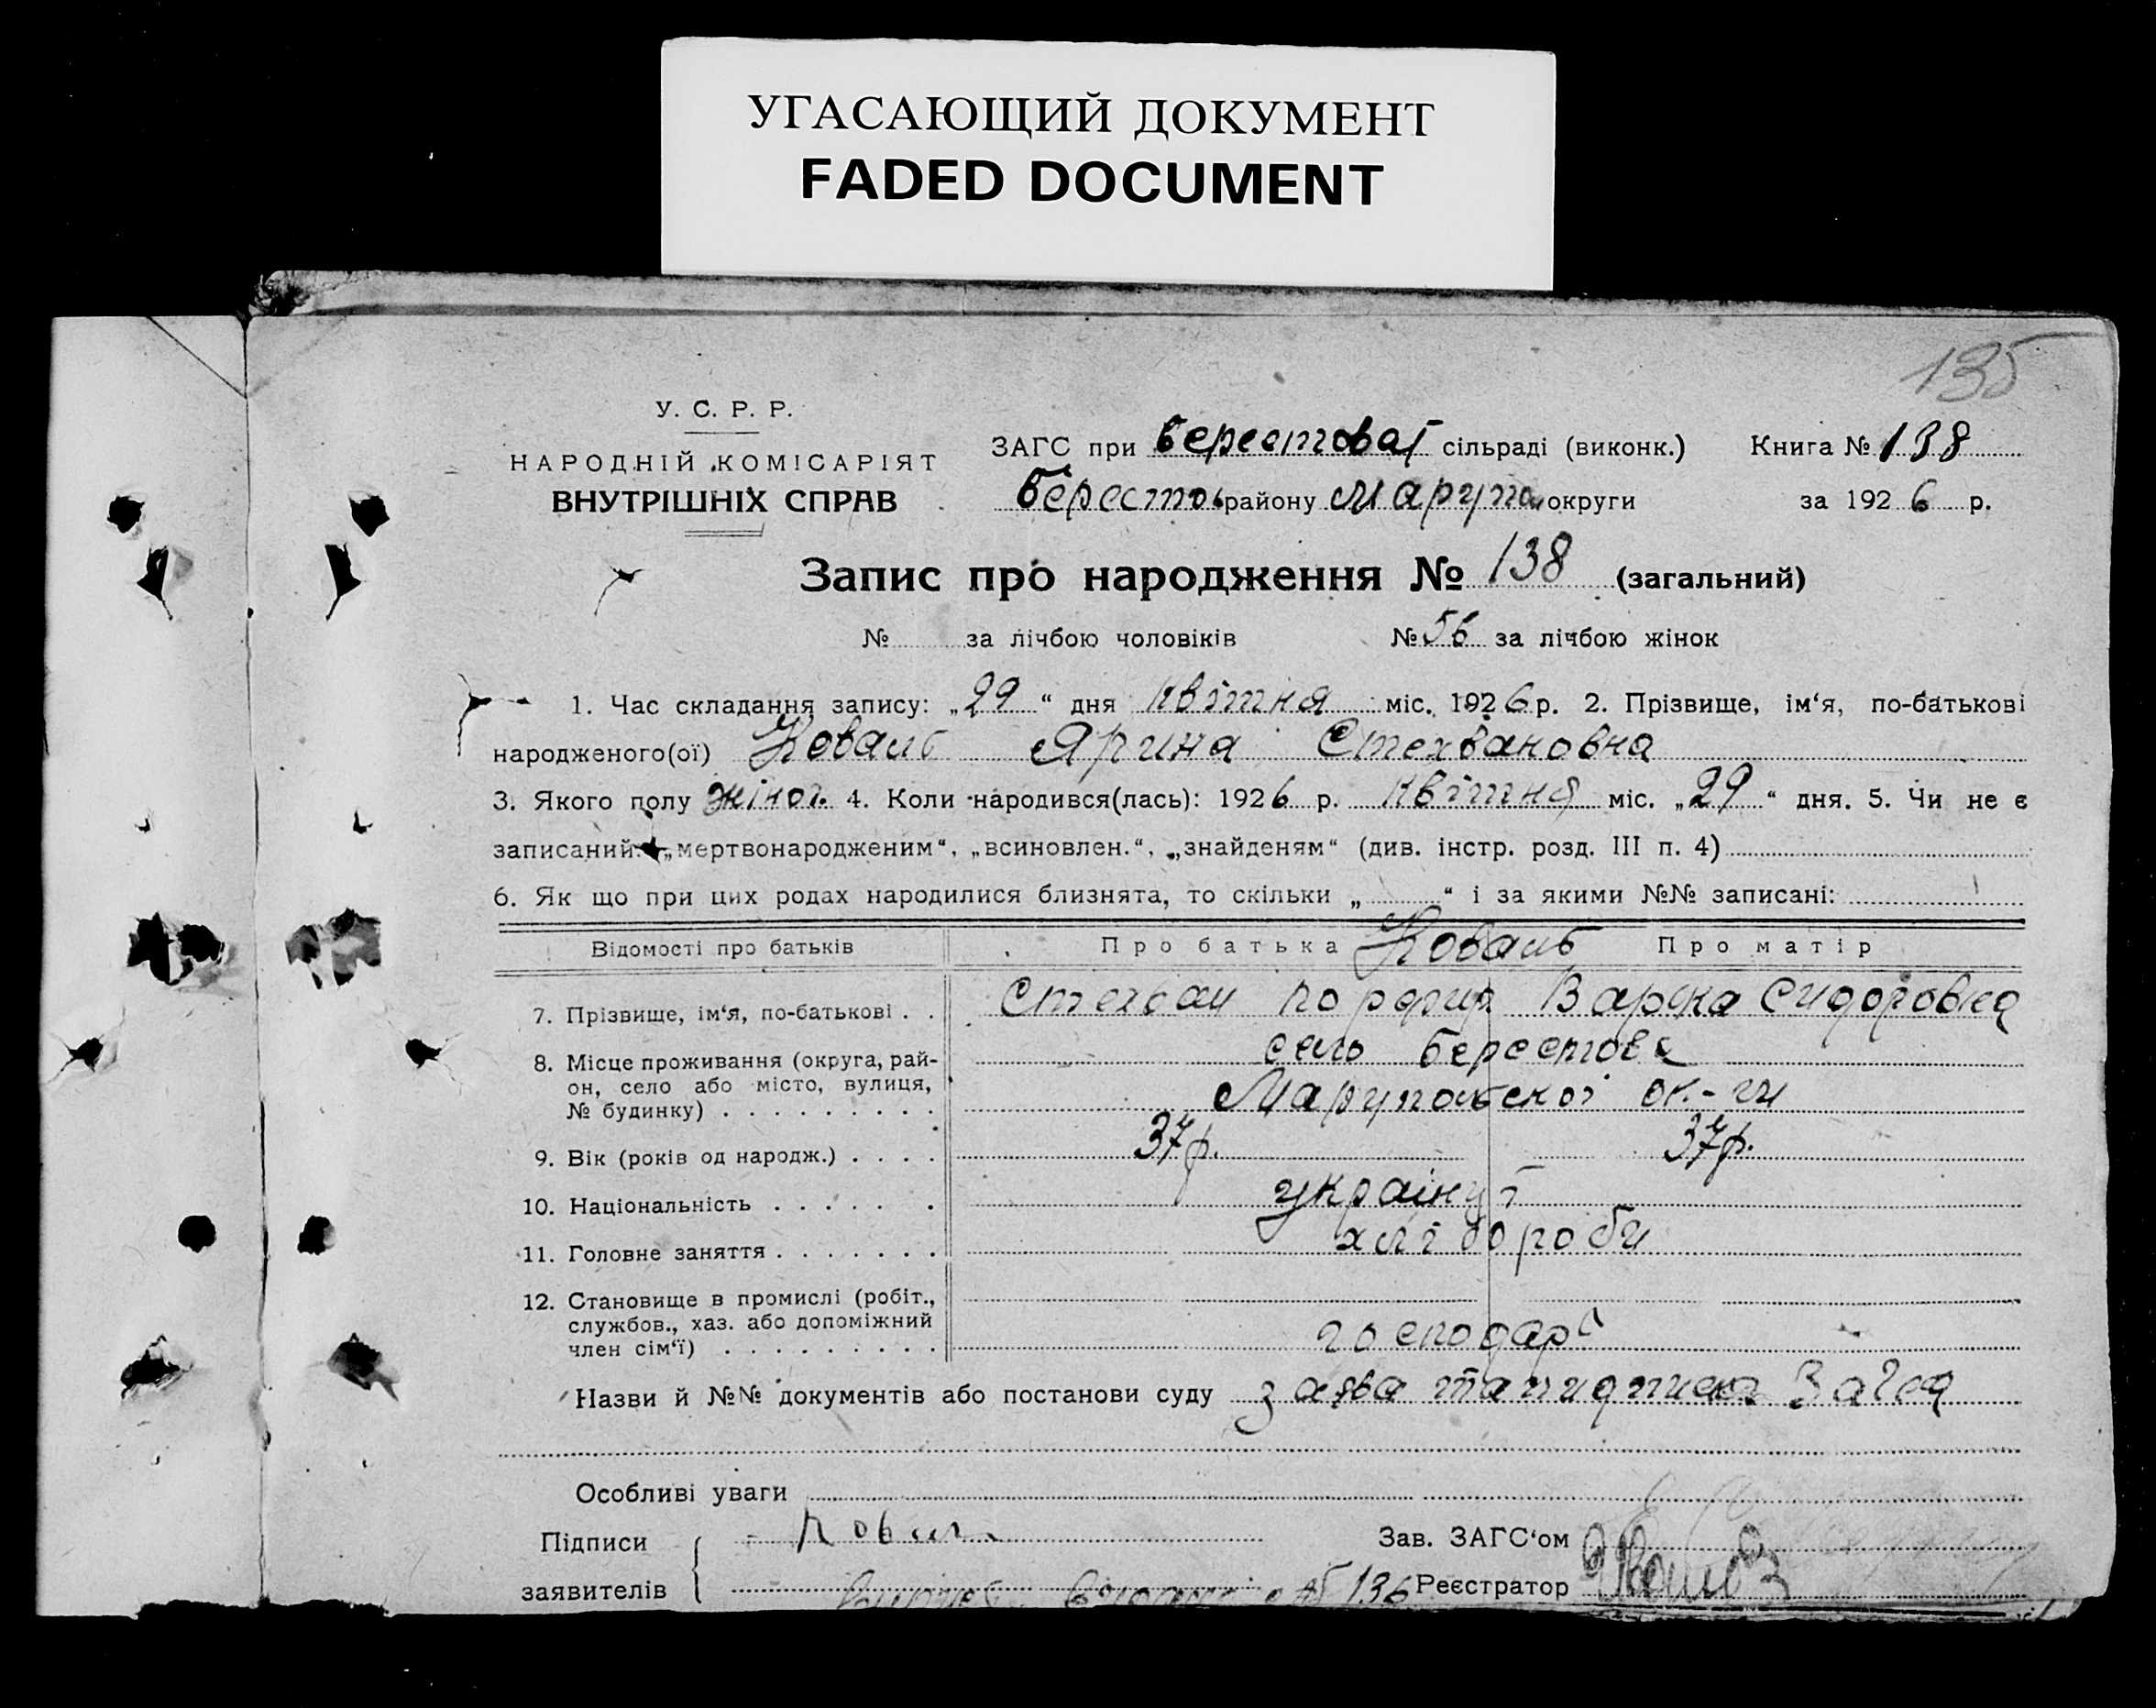 УГАСАЮЩИЙ ДОКУМЕНТ
FADED DOCUMENT
135
У. С. Р. Р.
НАРОДНІЙ КОМІСАРІЯТ
ВНУТРІШНІХ СПРАВ
ЗАГС при Берестоваї сільраді (виконк.) Книга № 138
Берестов району Маріуп округи за 1926 р.
Запис про народження № 138 (загальний)
№ за лічбою чоловіків № 56 за лічбою жінок
1. Час складання запису: „29“ дня квітня міс. 1926 р. 2. Прізвище, ім‘я, по-батькові
народженого(ої) Коваль Ярина Стехвановна
3. Якого полу жіноч. 4. Коли народився(лась): 1926 р. квітня міс. „29“ дня. 5. Чи не є
записаний: „мертвонародженим“, „всиновлен.“, „знайденям“ (див. інстр. розд. III п. 4)
6. Як що при цих родах народилися близнята, то скільки „ “ і за якими №№ записані:
Відомості про батьків Про батька Коваль Про матір
7. Прізвище, ім‘я, по-батькові . . Стехван Порфир Варка Сидоровна
8. Місце проживання (округа, рай- село Берестове
он, село або місто, вулиця,
№ будинку) . . . . . . . . . Маріупольскої ок-ги
9. Вік (років од народж.) . . . . 37 р. 37 р.
10. Національність . . . . . . україн
11. Головне заняття . . . . . . . хлібороби
12. Становище в промислі (робіт.,
службов., хаз. або допоміжний
член сім‘ї) . . . . . . . . . господарі
Назви й №№ документів або постанови суду заява та Загса
Особливі уваги
Підписи Ковал Зав. ЗАГС‘ом
заявителів 136 Реєстратор